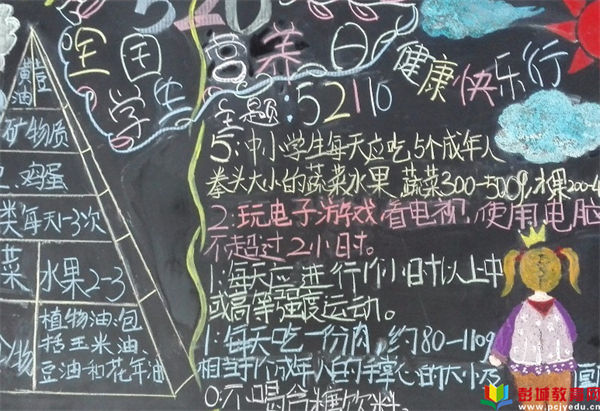 520
全国
学生
营养日
健康快乐行
主题:52110
5:中小学生每天应吃5个成年人
拳头大小的蔬菜水果 蔬菜300-500g,水果200-4
2:玩电子游戏看电视,使用电脑
不超过2小时。
1:每天应进行1个小时以上中
或高等强度运动。
1:每天吃一份肉,约80-110g
相当于个成年人的手掌心的大小及
0:不喝含糖饮料
黄豆
油
矿物质
鸡蛋
类每天1-3次
菜
水果2-3
物
植物油:包
括玉米油、
豆油和花年油
彭城教育网
www.pcjyedu.cn